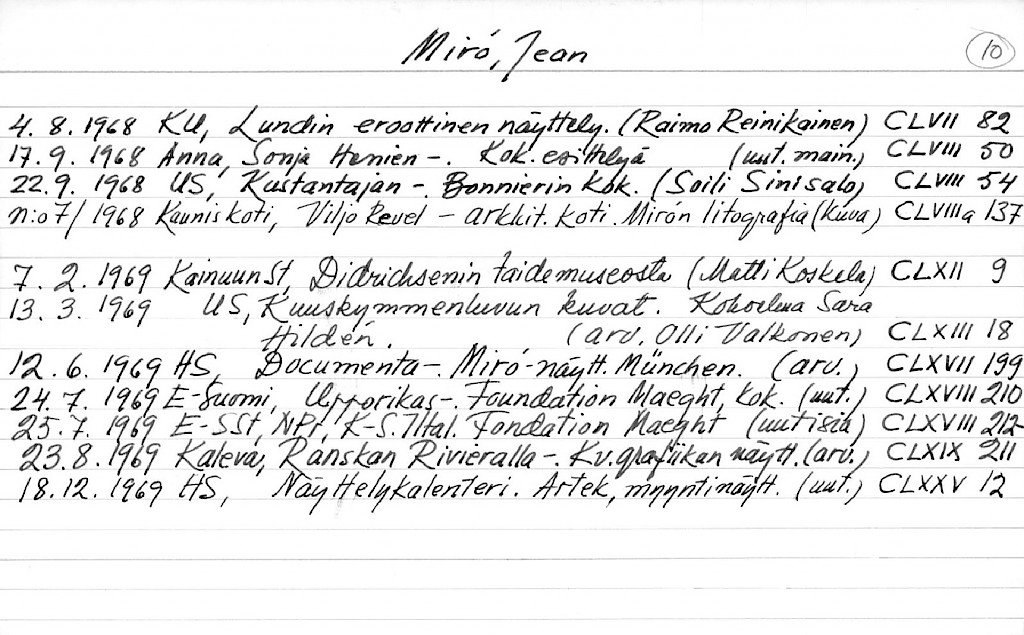 Miró, Jean
10
4. 8. 1968 KU, Lundin eroottinen näyttely. (Raimo Reinikainen) CLVII 82
17. 9. 1968 Anna, Sonja Henien -. Kok. esittelyä (uut. main.) CLVIII 50
22. 9. 1968 US, Kustantajan - Bonnierin kok. (Soili Sinisalo) CLVIII 54
n:o 7/1968 Kauniskoti, Viljo Revel - arkkit. koti. Mirón litografia (kuva) CLVIIIa 137
7. 2. 1969 KainuunSt, Didrichsenin taidemuseosta (Matti Koskela) CLXII 9
13. 3. 1969 US, Kuuskymmenluvun kuvat. Kokoelma Sara
Hildén. (arv. Olli Valkonen) CLXIII 18
12. 6. 1969 HS, Documenta-. Miró-näytt. München. (arv.) CLXVII 199
24. 7. 1969 E-Suomi, Upporikas-. Foundation Maeght, kok. (uut.) CLXVIII 210
25. 7. 1969 E-SSt, NPr, K-S. Iltal. Fondation Maeght (uutisia) CLXVIII 212
23. 8. 1969 Kaleva, Ranskan Rivieralla-. Kv. grafiikan näytt. (arv.) CLXIX 211
18. 12. 1969 HS, Näyttelykalenteri. Artek, myyntinäytt. (uut.) CLXXV 12